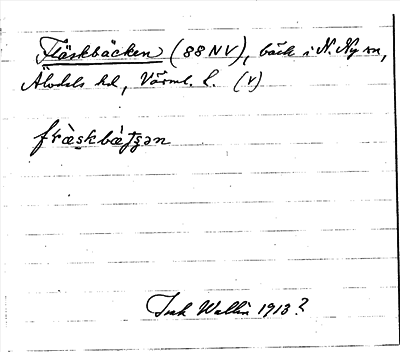 Fläskbäcken (88 NV), bäck i N. Ny sn,
Älvdals hd, Värml. l. (v)
fræskbætʂən
Ink Wallin 1913?